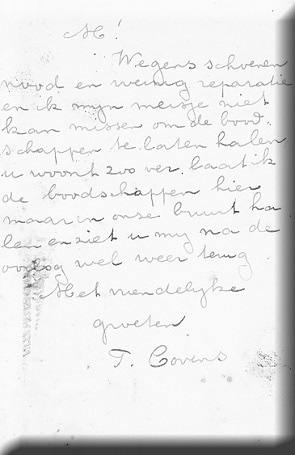 M!
Wegens schoenen
nood en weinig reparatie
en ik mijn meisje niet
kan missen om de bood.
schappen te laten halen
u woont zoo ver. laat ik
de boodschappen hier
maar in onse buurt ha
len en ziet u mij na de
oorlog wel weer terug
Met vriendelijke
groeten
T. Covens